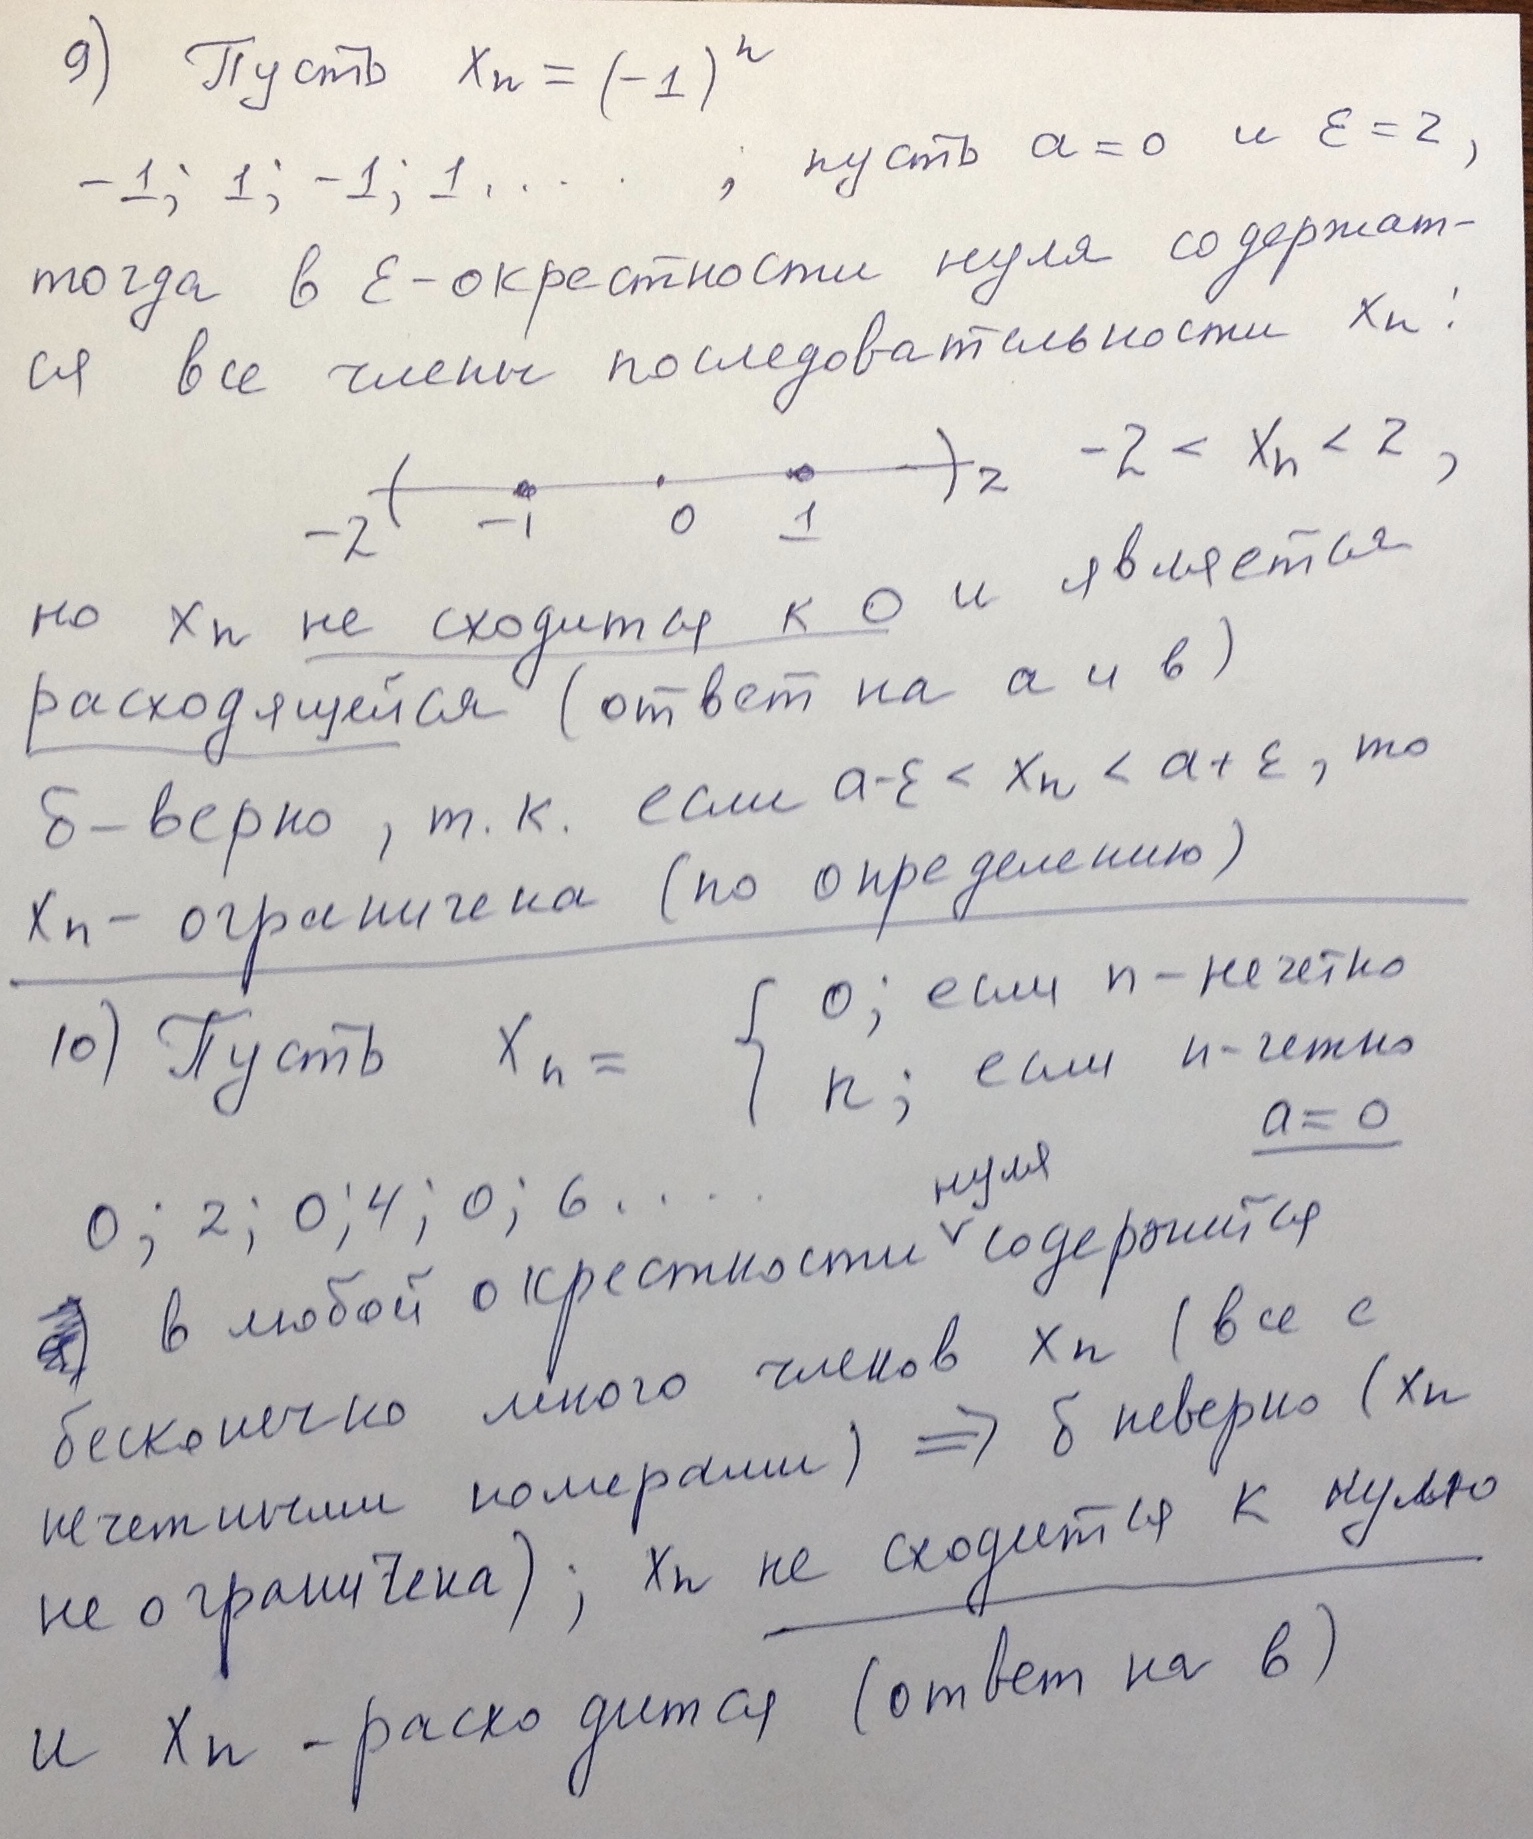 9) Пусть xₙ = (-1)ⁿ
-1; 1; -1; 1. . . . ; пусть a=0 и ε=2,
тогда в ε-окрестности нуля содержат-
ся все члены последовательности xₙ:
-2 ( -1 0 1 ) 2 -2 < xₙ < 2,
но xₙ не сходится к 0 и является
расходящейся (ответ на а и в)
б-верно, т.к. если a-ε < xₙ < a+ε, то
xₙ- ограничена (по определению)
10) Пусть xₙ = { 0; если n-нечетно
n; если n-четно
a=0
0; 2; 0; 4; 0; 6. . . .
в любой окрестности нуля содержится
бесконечно много членов xₙ (все с
нечетными номерами) ⇒ б неверно (xₙ
не ограничена); xₙ не сходится к нулю
и xₙ -расходится (ответ на в)